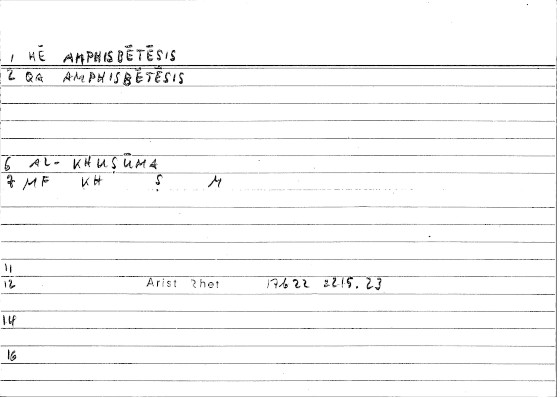 1 HĒ AMPHISBĒTĒSIS
2 QA AMPHISBĒTĒSIS
6 AL-KHUṢŪMA
7 MF KH Ṣ M
11
12 Arist Rhet 17b22 2215.23
14
16